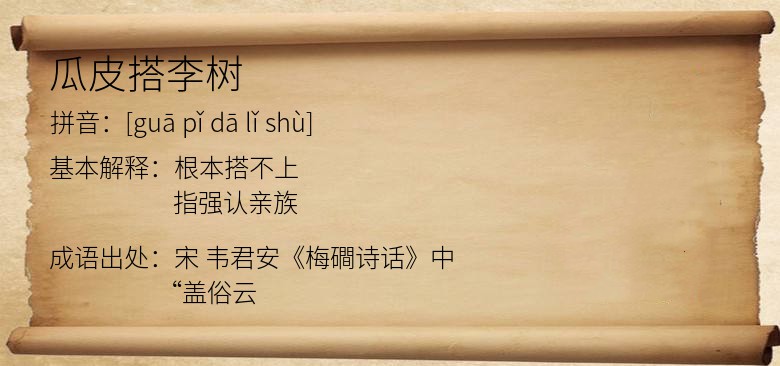 瓜皮搭李树
拼音：[guā pǐ dā lǐ shù]
基本解释：根本搭不上
指强认亲族
成语出处：宋 韦君安《梅磵诗话》中
“盖俗云